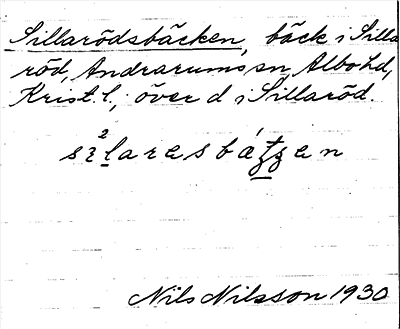 Sillarödsbäcken, bäck i Silla
röd, Andrarums sn, Albo hd,
Krist. l.; över d i Sillaröd.
Nils Nilsson 1930